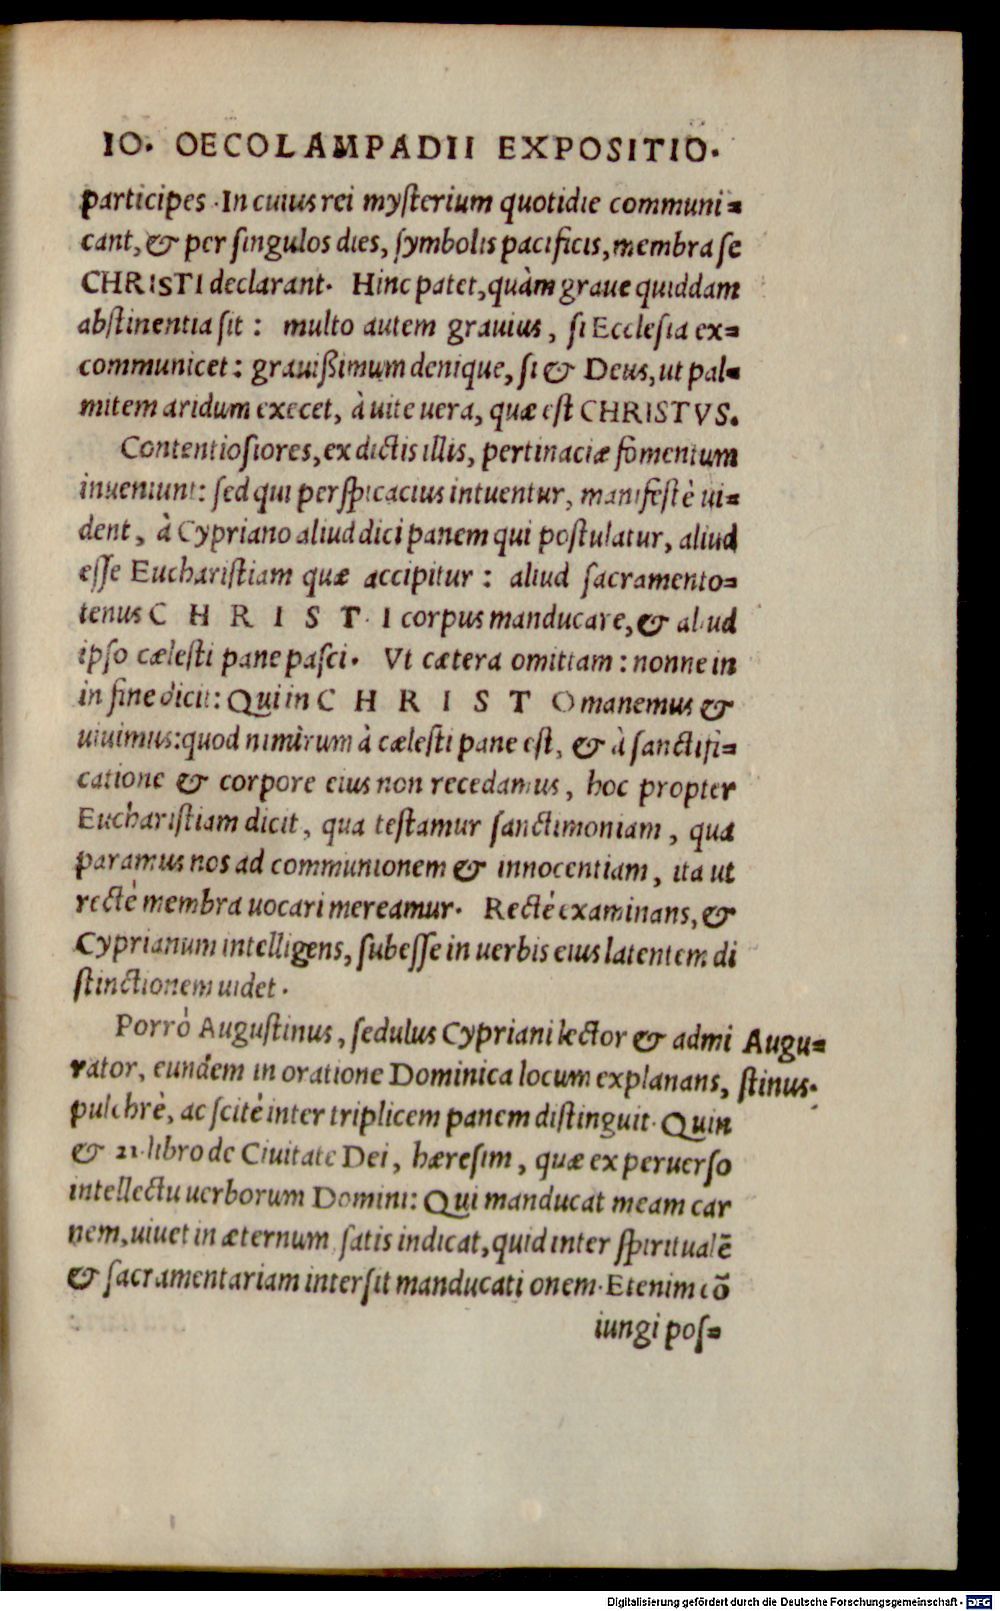 IO. OECOLAMPADII EXPOSITIO.
participes. In cuius rei mysterium quotidie communi=
cant, & per singulos dies, symbolis pacificis, membra se
CHRISTI declarant. Hinc patet, quàm graue quiddam
abstinentia sit: multo autem grauius, si Ecclesia ex=
communicet: grauißimum denique, si & Deus, ut pal=
mitem aridum execet, à uite uera, quæ est CHRISTVS.
Contentiosiores, ex dictis illis, pertinaciæ fomentum
inueniunt: sed qui perspicacius intuentur, manifestè ui=
dent, à Cypriano aliud dici panem qui postulatur, aliud
esse Eucharistiam quæ accipitur: aliud sacramento=
tenus C H R I S T I corpus manducare, & aliud
ipso cælesti pane pasci. Vt cætera omittam: nonne in
in fine dicit: Qui in C H R I S T O manemus &
uiuimus: quod nimirum à cælesti pane est, & à sanctifi=
catione & corpore eius non recedamus, hoc propter
Eucharistiam dicit, qua testamur sanctimoniam, qua
paramus nos ad communionem & innocentiam, ita ut
rectè membra uocari mereamur. Rectè examinans, &
Cyprianum intelligens, subesse in uerbis eius latentem di
stinctionem uidet.
Porrò Augustinus, sedulus Cypriani lector & admi Augu=
rator, eundem in oratione Dominica locum explanans, stinus.
pulchrè, ac scitè inter triplicem panem distinguit. Quin
& 21. libro de Ciuitate Dei, hæresim, quæ ex peruerso
intellectu uerborum Domini: Qui manducat meam car
nem, uiuet in æternum, satis indicat, quid inter spiritualẽ
& sacramentariam intersit manducati onem. Etenim cõ
iungi pos=
Digitalisierung gefördert durch die Deutsche Forschungsgemeinschaft - DFG